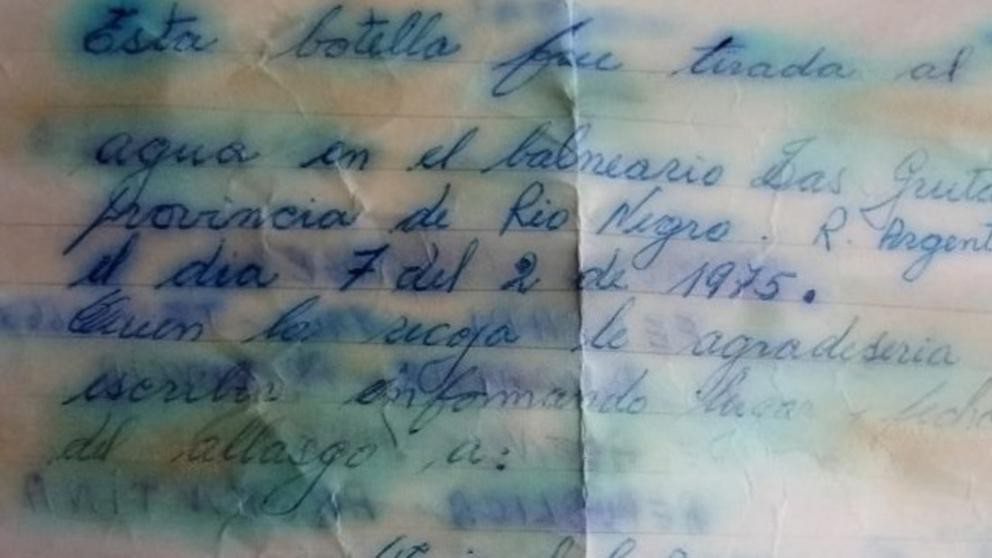 Esta botella fue tirada al
agua en el balneario Las Gruta
provincia de Rio Negro. R. Argent
el dia 7 del 2 de 1975.
Quien la recoja le agradeseria
escribir informando lugar y fecha
del allasgo a:
REPUBLICA ARGENTINA